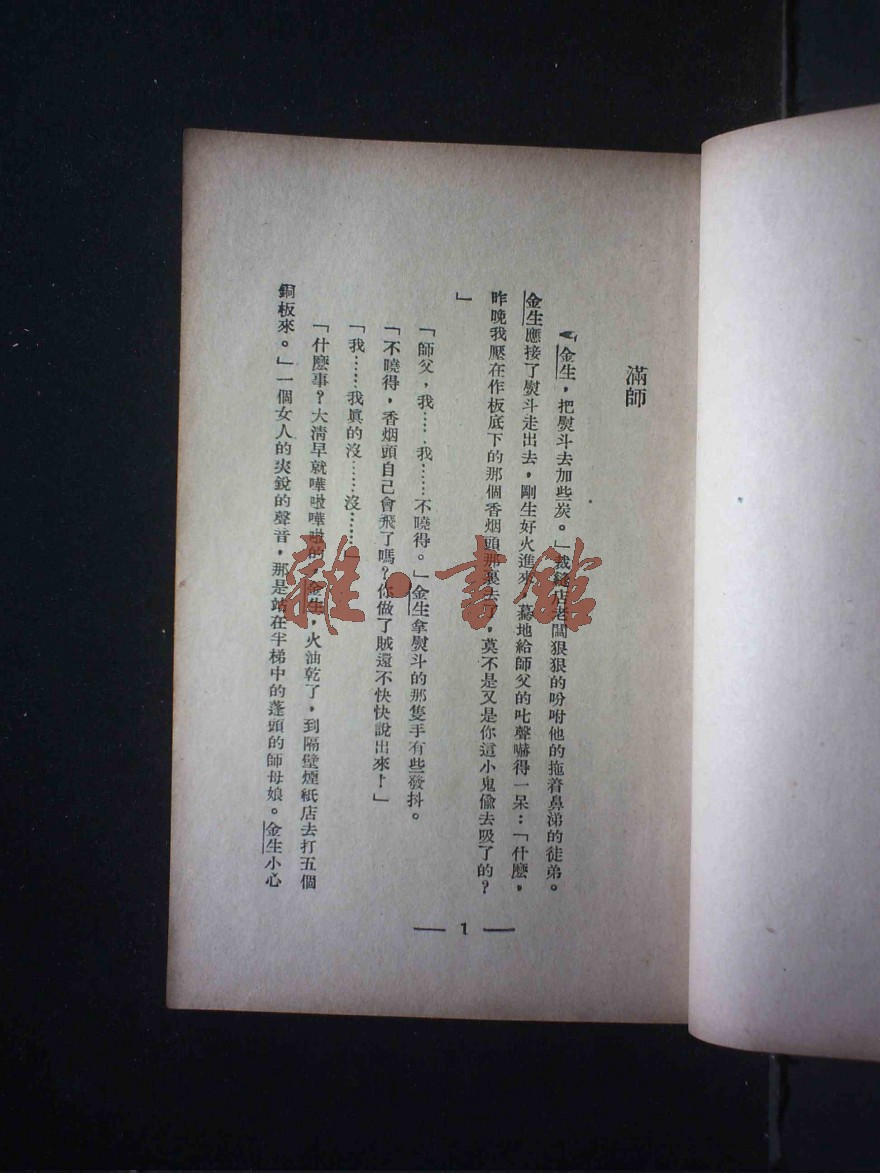 滿師
「金生，把熨斗去加些炭。」裁縫店老闆狠狠的吩咐他的拖着鼻涕的徒弟。
金生應接了熨斗走出去，剛生好火進來，驀地給師父的叱聲嚇得一呆：「什麼，
昨晚我壓在作板底下的那個香烟頭那裏去了，莫不是又是你這小鬼偷去吸了的？
」
「師父，我……我……不曉得。」金生拿熨斗的那隻手有些發抖。
「不曉得，香烟頭自己會飛了嗎？你做了賊還不快快說出來！」
「我……我眞的沒……沒……」
「什麼事？大清早就嘩啦嘩啦的，金生，火油乾了，到隔壁煙紙店去打五個
銅板來。」一個女人的尖銳的聲音，那是站在半梯中的蓬頭的師母娘。金生小心
— 1 —
雜·書館